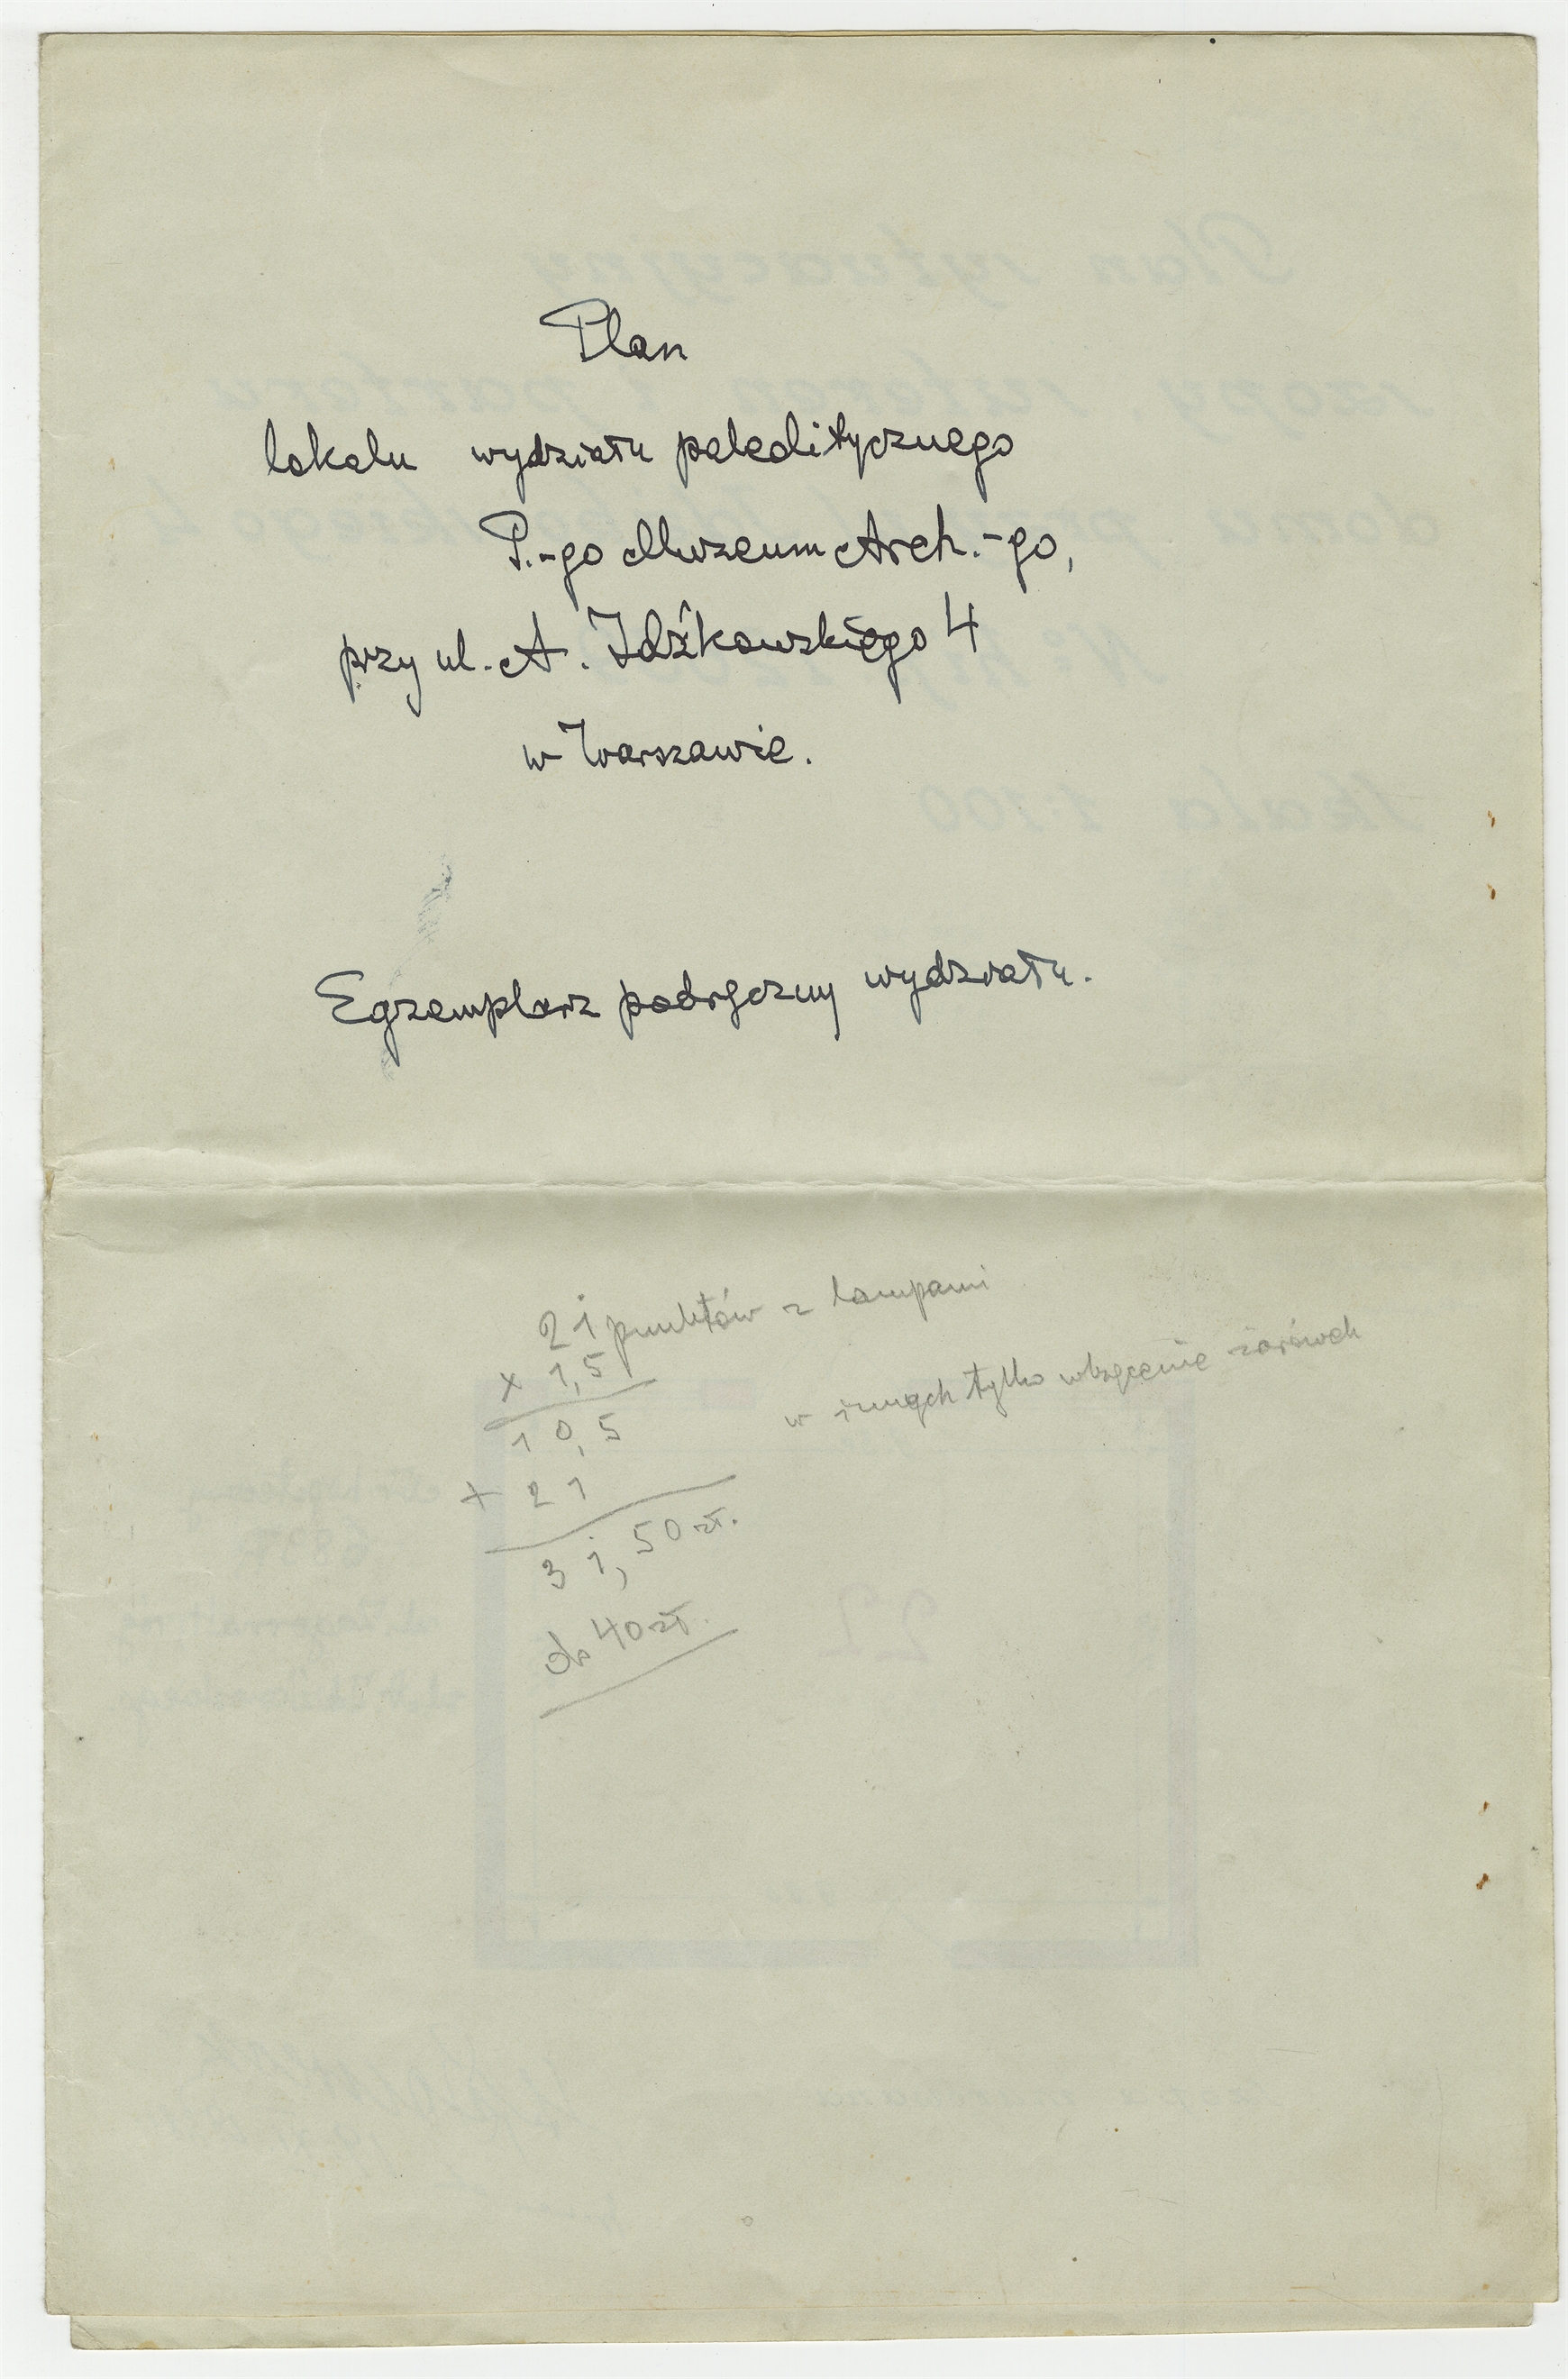 Plan
lokalu wydziału paleolitycznego
P.-go Muzeum Arch.-go,
przy ul. A. Idźkowskiego 4
w Warszawie.
Egzemplarz podręczny wydziału.
21 punktów z lampami
x 1,5
w innych tylko wkręcenie żarówek
10,5
+ 21
31,50 zł.
do 40 zł.